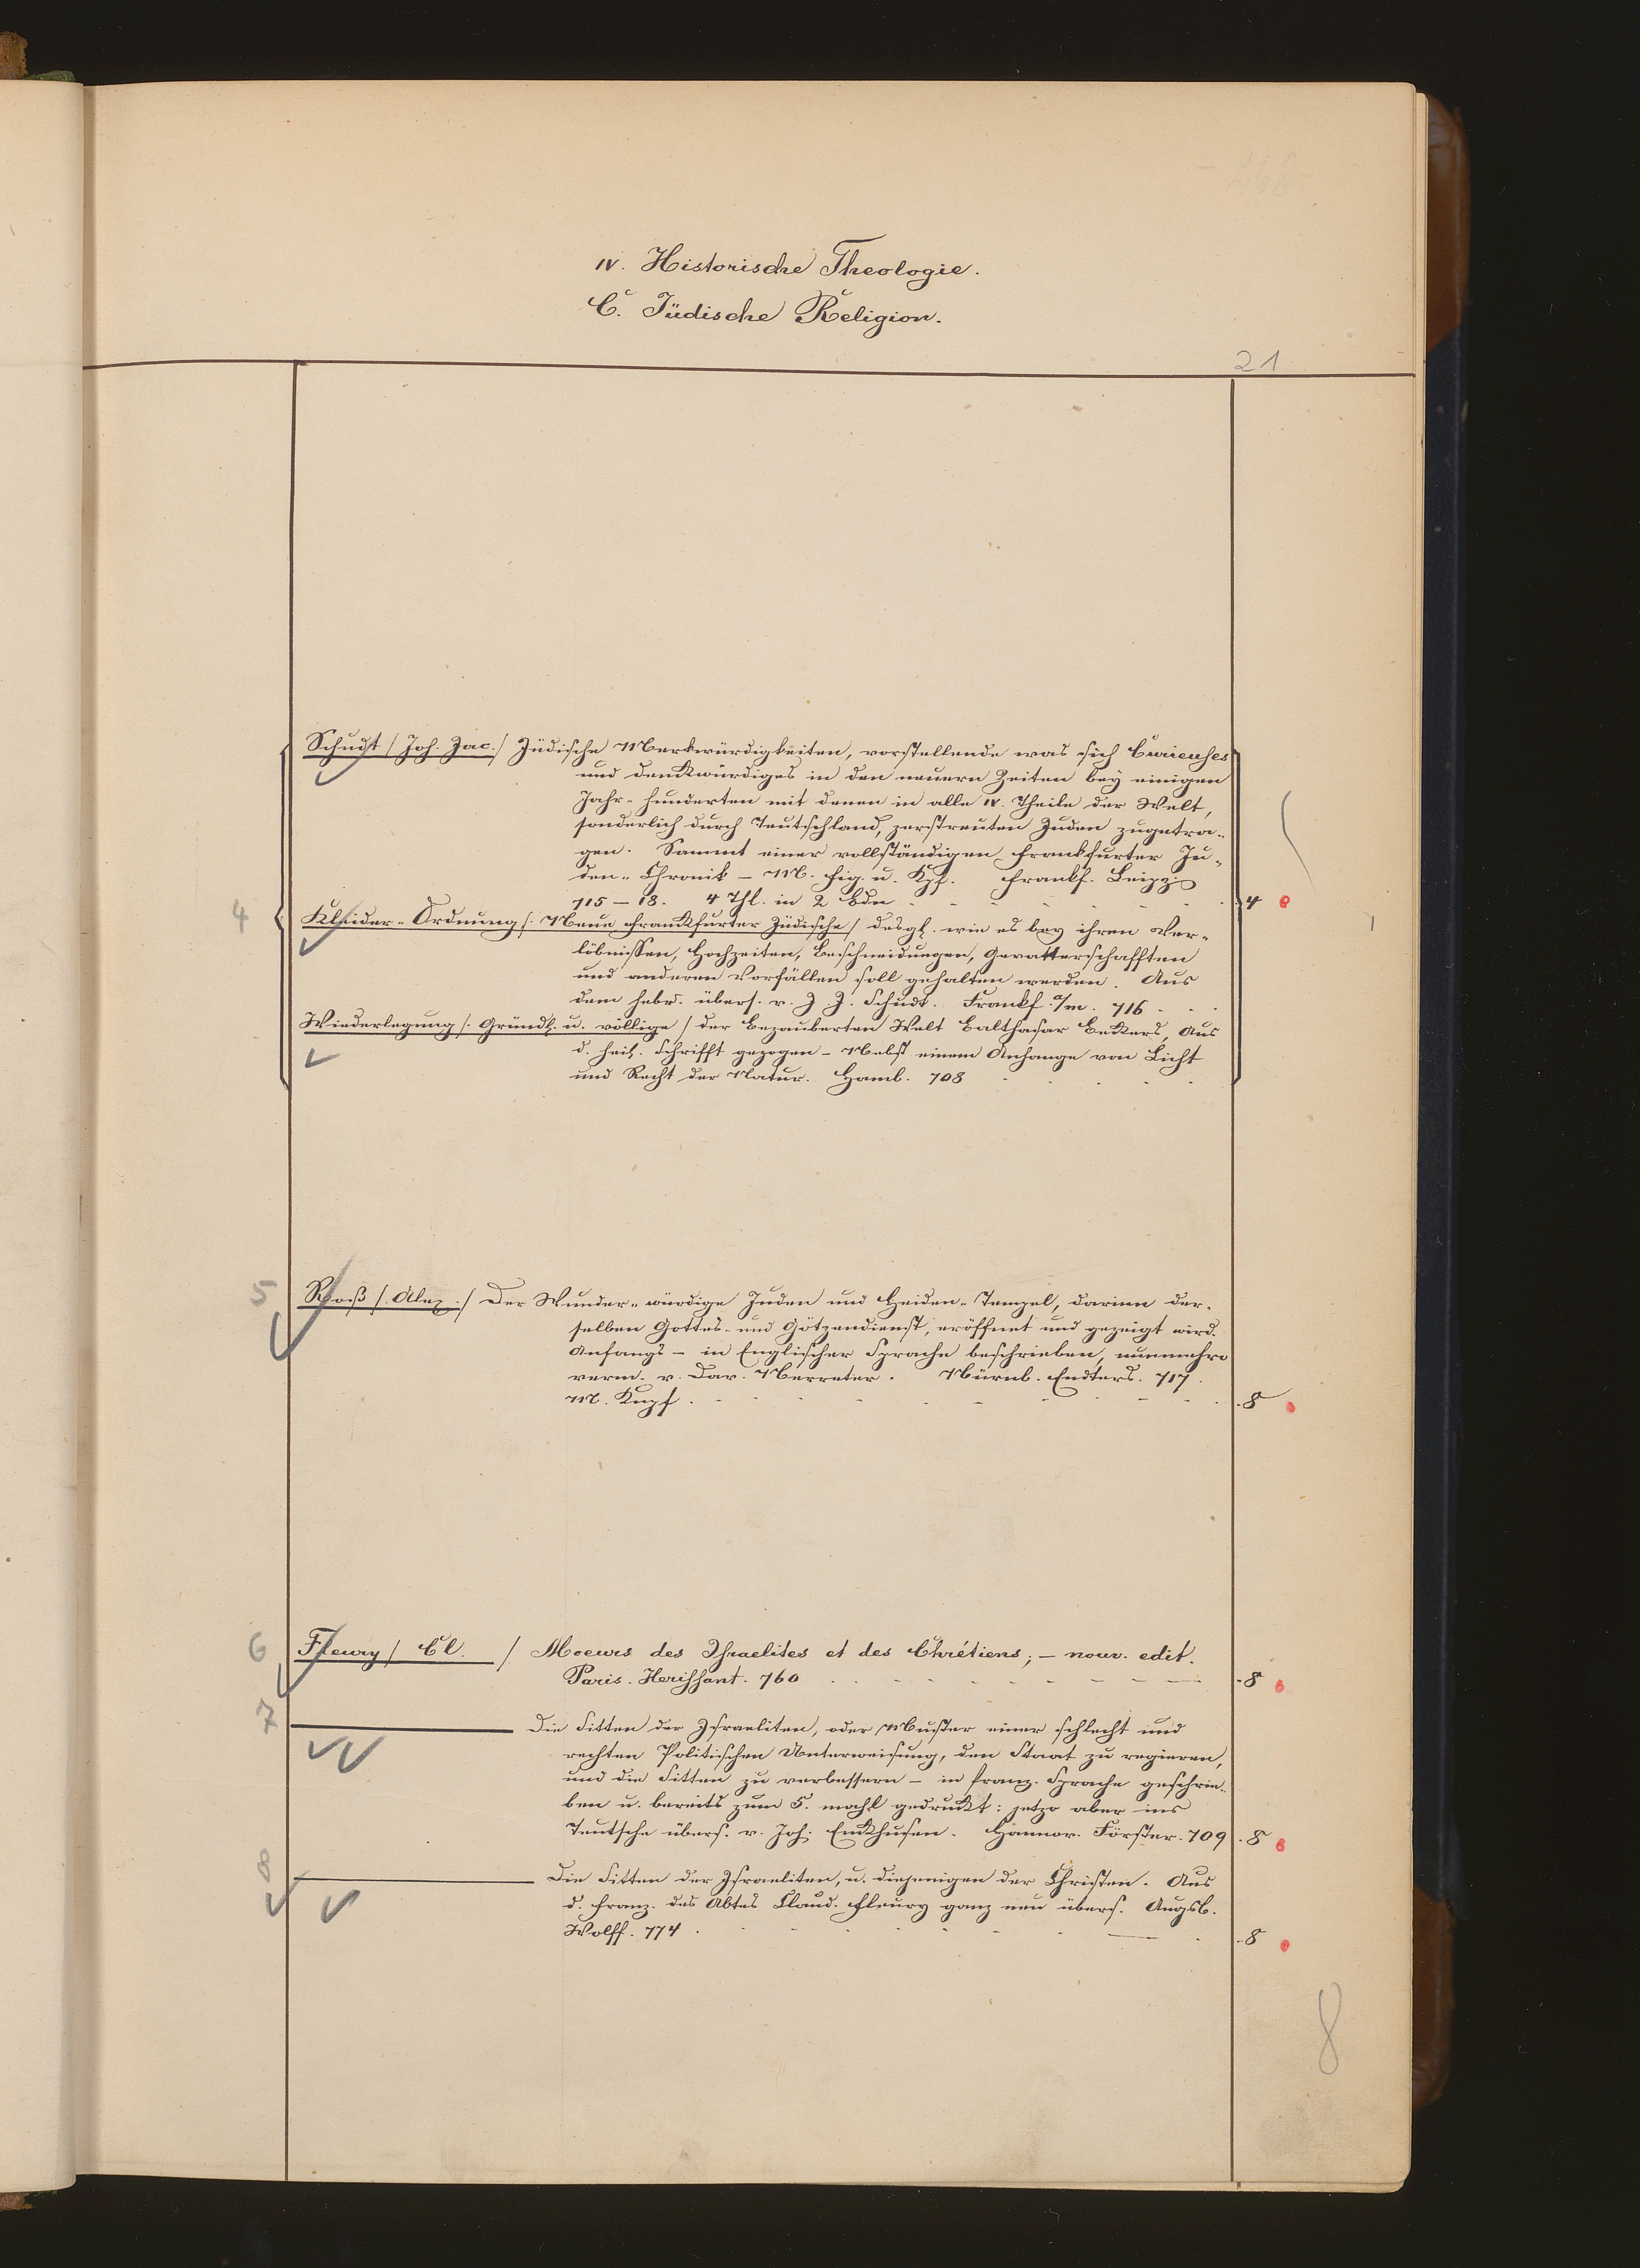 IV. Historische Theologie.
C. Jüdische Religion.
21
Schudt /Joh. Jac./ Jüdische Merkwürdigkeiten, vorstellende was sich Curieuses
und denckwürdiges in den neuern Zeiten bey einigen
Jahr-hunderten mit denen in alle IV. Theile der Welt,
sonderlich durch Teutschland, zerstreuten Juden zugetra-
gen. Sammt einer vollständigen Franckfurter Ju-
den-Chronik – M. Fig. u. Kpf. Frankf. Leipz.
715–18. 4 Thl. in 2 Bdn 4
4 Kleider-Ordnung /: Neue Franckfurter Jüdische / desgl. wie es bey ihren Ver-
löbnissen, Hochzeiten, Beschneidungen, Gevatterschafften
und anderen Vorfällen soll gehalten werden. Aus
dem hebr. übers. v. J. J. Schudt. Frankf. a/m. 716
Wiederlegung /: Gründl. u. völlige / der bezauberten Welt Balthasar Bekers, Aus
d. heil. Schrifft gezogen – Nebst einem Anhange von Licht
und Recht der Natur. Hamb. 708
5 Roß /: Alex :/ Der Wunder-würdige Juden und Heiden-Tempel, darinn der-
selben Gottes- und Götzendienst, eröffnet und gezeigt wird.
Anfangs – in Englischer Sprache beschrieben, nunmehro
verm. v. Dav. Nerreter. Nürnb. Endters. 717.
M. Kupf. 8
6 Fleury / Cl. / Moeurs des Israelites et des Chrétiens; – nouv. edit.
Paris. Herissant. 760 8
7 Die Sitten der Israeliten, oder Muster einer schlecht und
rechten Politischen Unterweisung, den Staat zu regieren,
und die Sitten zu verbessern – in franz. Sprache geschrie-
ben u. bereits zum 5. mahl gedruckt: jetzo aber ins
Teutsche übers. v. Joh. Enckhusen. Hannov. Förster. 709 8
8 Die Sitten der Israeliten, u. diejenigen der Christen. Aus
d. Franz. des Abtes Claud. Fleury ganz neu übers. Augsb.
Wolff. 774 8
8